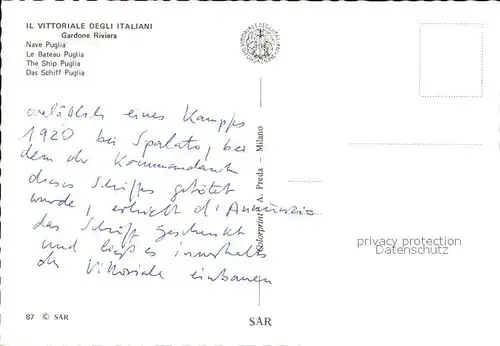 IL VITTORIALE DEGLI ITALIANI
Gardone Riviera
Nave Puglia
Le Bateau Puglia
The Ship Puglia
Das Schiff Puglia
anläßlich eines Kampfes
1920 bei Spalato, bei
dem der Kommandant
dieses Schiffes getötet
wurde, erhielt d'Annunzio
das Schiff geschenkt
und ließ es innerhalb
der Vittoriale einbauen
Colorprint A. Preda – Milano
privacy protection
Datenschutz
87 © SAR
SAR